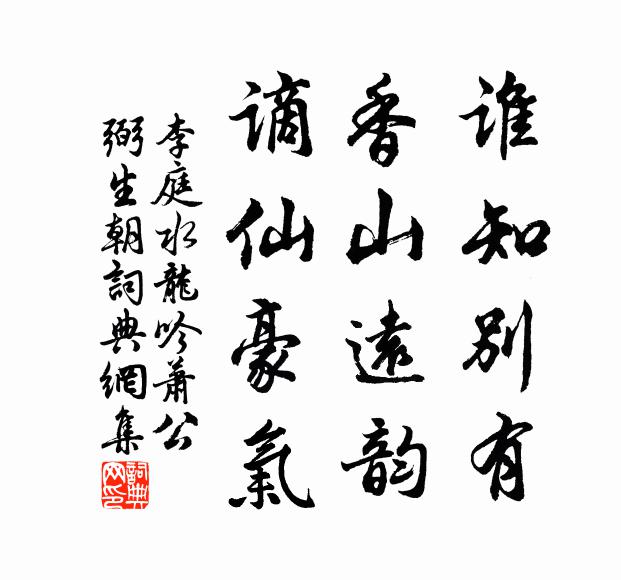 誰知別有
香山遠韵
谪仙豪氣
李庭水龍吟蕭公
弼生朝詞典網集
詞典
网印